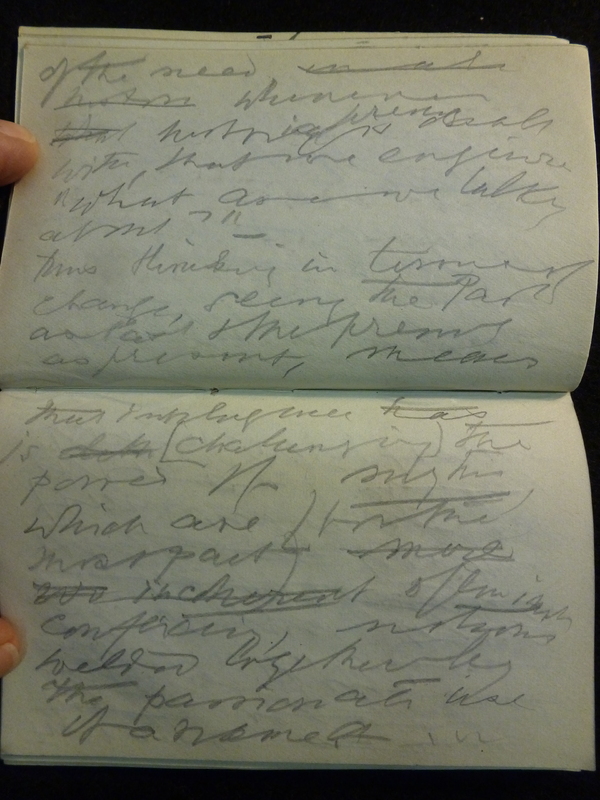 of the need
whenever
that history is dealt
with, that we enquire
"what are we talking
about?"
thus thinking in terms of
change, seeing the Past
as Past & the present
as present, means
that intelligence has
is [challenging] the
power of myths,
which are (for the
most part) more
incoherent often
conflicting notions
welded together by
the passionate use
of a name